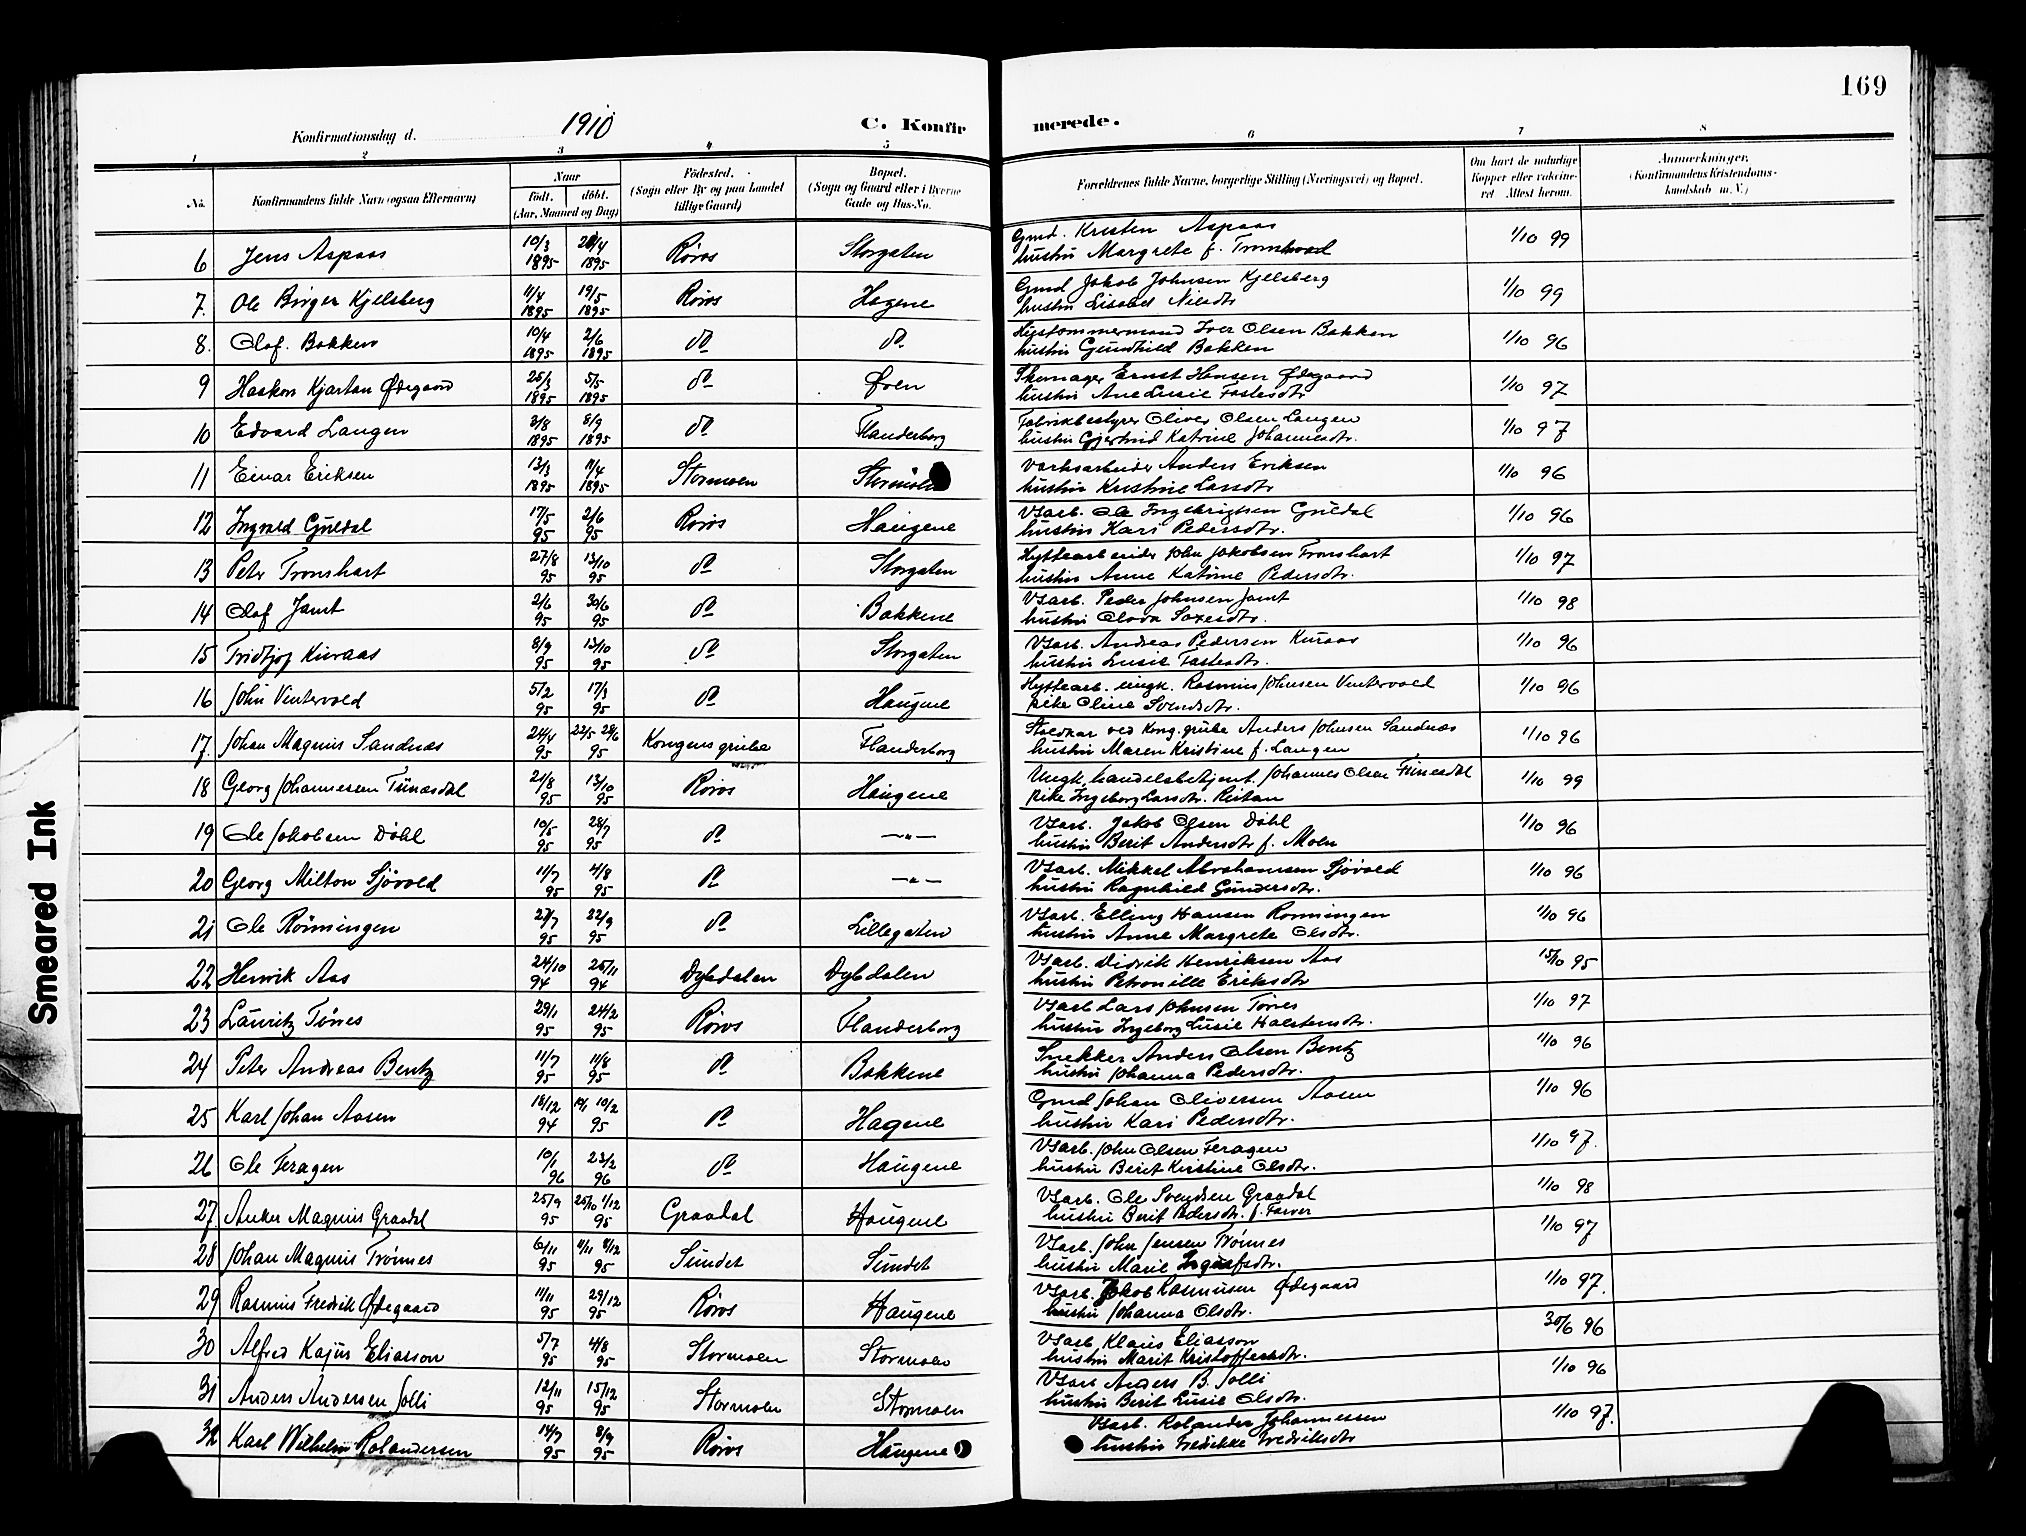 169
Konfirmationsdag d. 1910
C. Konfirmerede.
1 2 3 4 5 6 7 8
No.
Konfirmandens fulde Navn (ogsaa Efternavn)
Naar
födt. döbt.
(Aar, Maaned og Dag)
Födested.
(Sogn eller By og paa Landet
tillige Gaard)
Bopæl.
(Sogn og Gaard eller i Byerne
Gade og Hus-No.
Forældrenes fulde Navne, borgerlige Stilling (Næringsvei) og Bopæl.
Om havt de naturlige
Kopper eller vakcine-
ret Attest herom.
Anmærkninger.
(Konfirmandens Kristendoms-
kundskab m. V.)
6 Jens Aspaas 10/3 1895 /4 1895 Röros Storgaten
Gmd. Kristen Aspaas
hustru Margrete f. 1/10 99
7. Ole Birger Kjelsberg 11/4 1895 19/5 1895 Röros Hagene
Gmd Jakob Johnsen Kjelsberg
hustru Lisabet Nilsdtr 1/10 99
8. Olaf. Bakken 10/4 1895 2/6 1895 do do
Iver Olsen Bakken
hustru Gunhild Bakken 1/10 96
9 Haakon Kjartan Ødegaard 25/3 1895 5/5 1895 do Øren
Skomager Ernst Hansen Ødegaard
hustru Ane Lusie Fastesdtr 1/10 97
10 Edvard Langen 3/8 1895 8/9 1895 do Flanderborg
Fabrikbestyrer Oliver Olsen Langen
hustru Gjertrud Katrine Johannesdtr. 1/10 97
11 Einar Eriksen 13/3 1895 11/4 1895 Stormoen Stormoen
Verksarbeider Anders Eriksen
hustru Kristine Larsdtr 1/10 96
12 Ingvald Guldal 17/5 95 2/6 95 Röros Haugene
Vsarb. Ole Ingebrigtsen Guldal
hustru Kari Pedersdtr. 1/10 96
13 Peter Tronshart 27/8 95 13/10 95 do Storgaten
Hyttearbeider John Jakobsen Tronshart
hustru Anne Katrine Pedersdtr. 1/10 97
14 Olaf Jamt 2/6 95 30/6 95 do Bakkene
Vsarb. Peder Johnsen Jamt
hustru Olava Saxesdtr. 1/10 98
15 Fridtjof Kuraas 8/9 95 13/10 95 do Storgaten
Vsarb. Andreas Pedersen Kuraas
hustru Lusie Fastesdtr. 1/10 96
16 John Vintervold 5/2 95 17/3 95 do Haugene
Hyttearb. ungk. Rasmus Johnsen Vintervold
pike Oline Svendsdtr. 1/10 96
17. Johan Magnus Sandnæs 24/4 95 22/5 28/6 95 Kongens grube Flanderborg
ved Kong. grube Anders Johnsen Sandnæs
hustru Maren Kristine f. Langen 1/10 96
18 Georg Johannessen Funæsdal 21/8 95 13/10 95 Röros Haugene
Ungk. handelsbetjent. Johannes Olsen Funesdal
pike Ingeborg Larsdtr. Reitan 1/10 99
19 Ole Jakobsen Döhl 10/5 95 28/7 95 do — " —
Vsarb. Jakob Olsen Döhl
hustru Berit Andersdtr f. Moen 1/10 96
20 Georg Milton Sjövold 11/7 95 4/8 95 do — " —
Vsarb. Mikkel Abrahamsen Sjövold
hustru Ragnhild Gundersdtr. 1/10 96
21 Ole Rönningen 27/7 95 22/9 95 do Lillegaten
Vsarb. Elling Hansen Rønningen
hustru Anne Margrete Olsdtr. 1/10 96
22 Henrik Aas 24/10 94 25/11 94 Dybdalen Dybdalen
Vsarb. Didrik Henriksen Aas
hustru Petronille Eriksdtr 15/10 95
23 Lauritz Tönes 29/1 95 24/2 95 Röros Flanderborg
Vsarb Lars Johnsen Tönes
hustru Ingeborg Lusie Halstensdtr. 1/10 97
24 Peter Andreas Bentz 11/7 95 11/8 95 do Bakkene
Snekker Anders Olsen Bentz
hustru Johanna Pedersdtr. 1/10 96
25 Karl Johan Aasen 18/12 94 10/2 95 do Hagene
Gmd Johan Oliversen Aasen
hustru Kari Pedersdtr. 1/10 96
26 Ole Feragen 10/1 96 23/2 96 do Haugene
Vsarb. John Olsen Feragen
hustru Berit Kirstine Olsdtr. 1/10 97.
27 Anker Magnus Graadal 25/9 95 25/10 1/12 95 Graadal Haugene
Vsarb. Ole Svendsen Graadal
hustru Berit Pedersdtr. f. 1/10 98
28 Johan Magnus Trönnes 6/11 95 11/11 8/12 95 Sundet Sundet
Vsarb. John Jensen Trönnes
hustru Marie 1/10 97
29 Rasmus Fredrik Ødegaard 11/11 95 29/12 95 Röros Haugene
Vsarb. Jakob Rasmussen Ødegaard
hustru Johanna Olsdtr. 1/10 97.
30 Alfred Kajus Eliasson 5/7 95 4/8 95 Stormoen Stormoen
Vsarb Klaus Eliasson
hustru Marit Kristoffersdtr. 30/6 96
31 Anders Andersen Solli 12/11 95 15/12 95 Stormoen Stormoen
Vsarb Anders B. Solli
hustru Berit Lusie Olsdtr. 1/10 96
32 Karl Wilhelm Rolandersen 14/7 95 8/9 95 Röros Haugene
Vsarb. Rolander Johannessen
hustru Fredrikke Fredriksdtr 1/10 97.
Smeared Ink